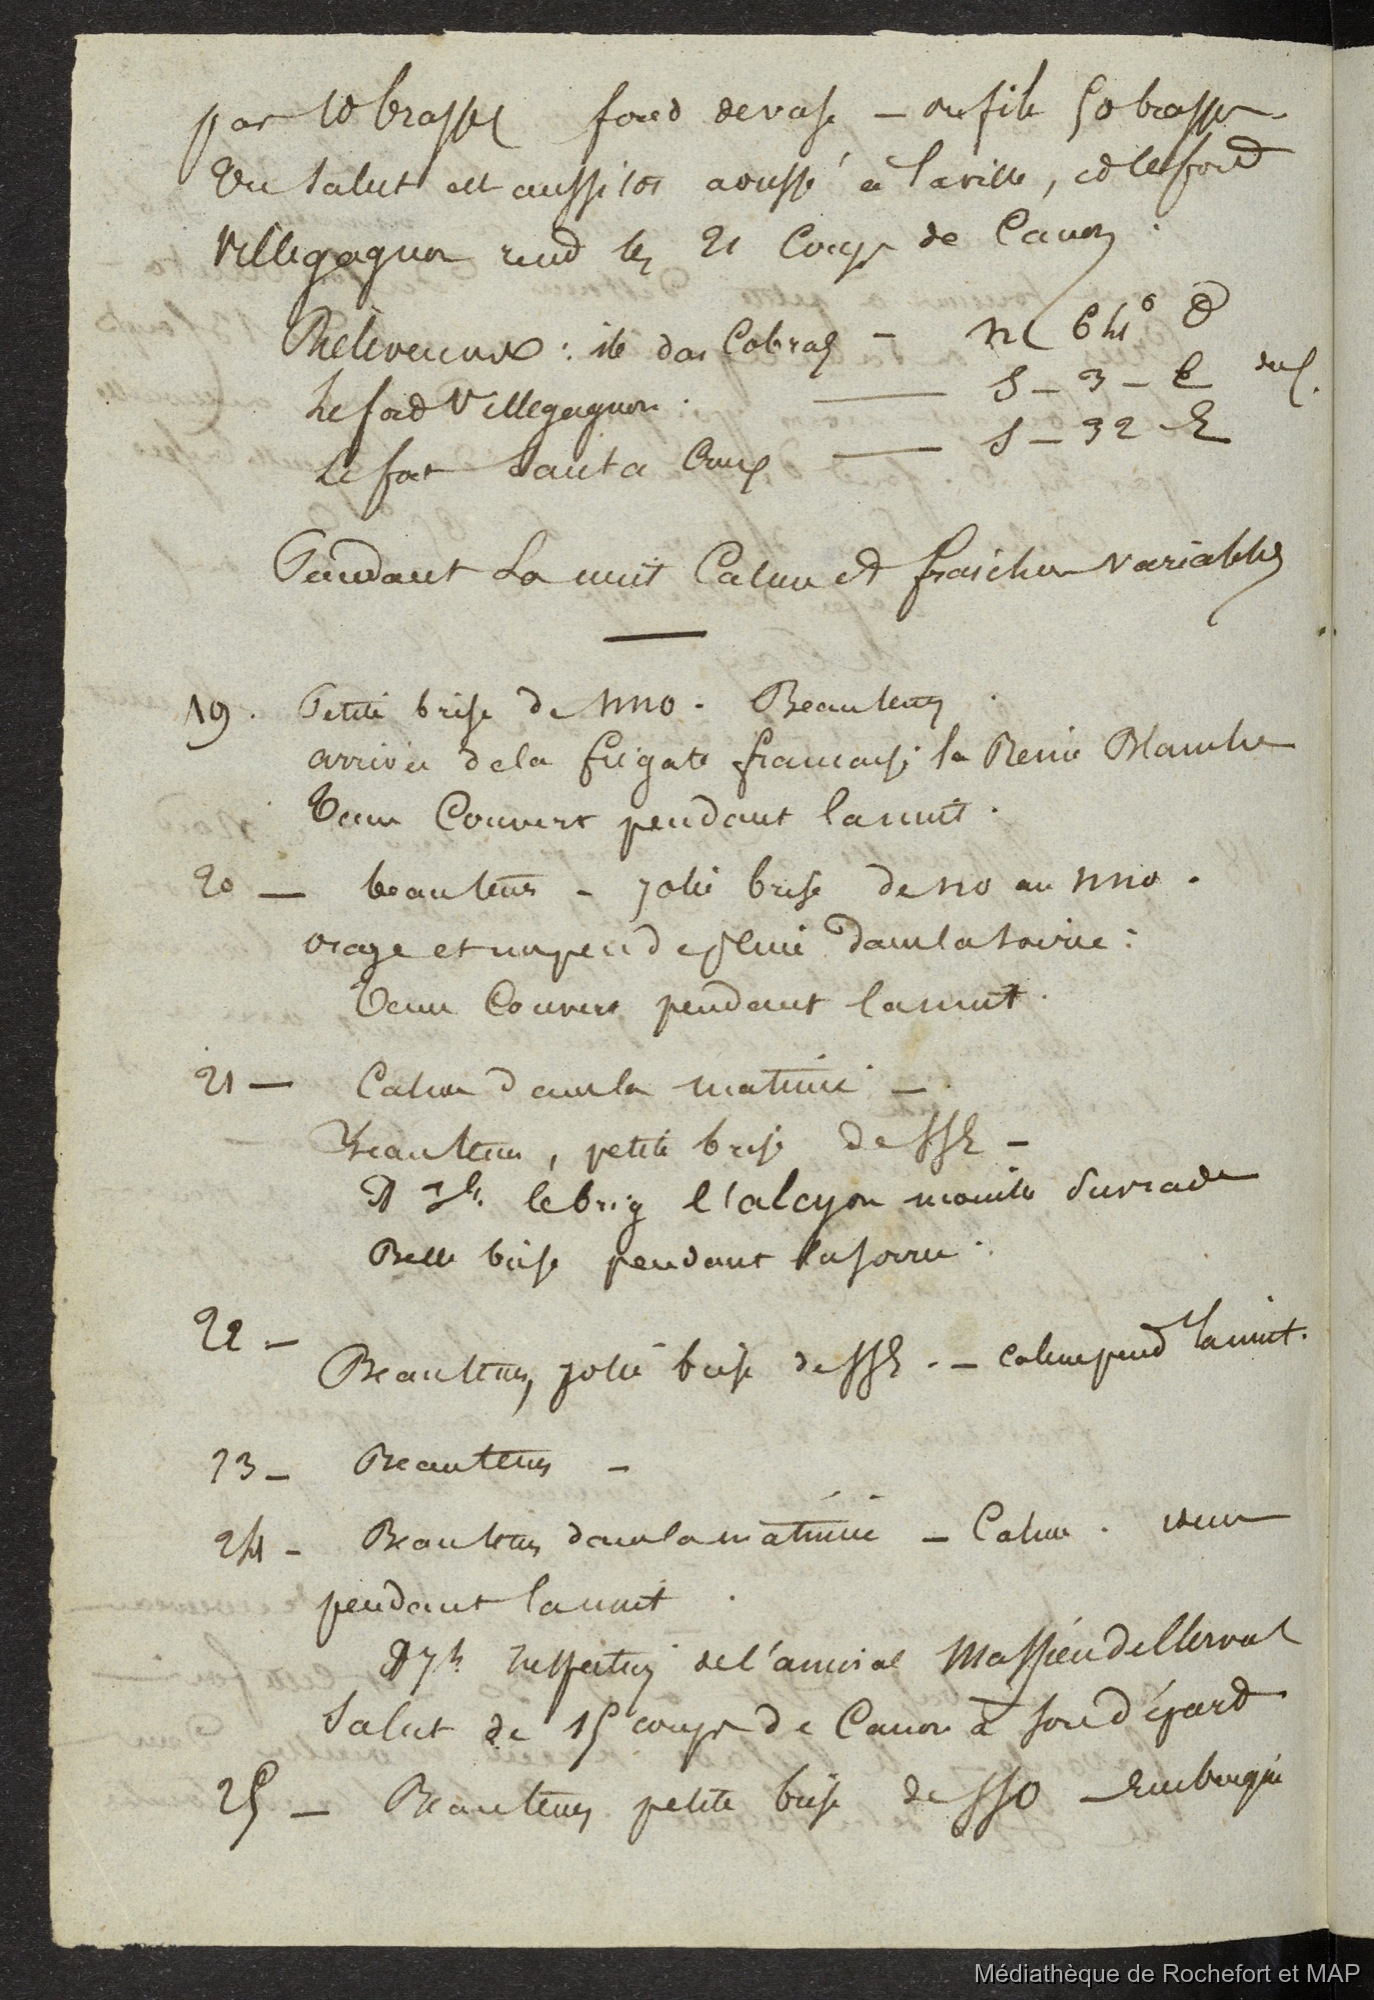 par 10 brasses fond de vase — on file 50 brasses
Un salut est aussitot adressé à la ville, et le ford
Villegagnon rend les 21 coups de Canon.
Relèvemens : ile das Cobras — N 6 O
du C.
Le ford Villegagnon. — S — 3 — E
Le fort Santa Cruz — S — 32 E
Pendant la nuit Calme et fraicheur variables
19. Petite brise de NNO. Beau temps.
arrivée de la frégate française la Reine Blanche
Tems Couvert pendant la nuit.
20 — beau tems — jolie brise de NO au NNO.
orage et un peu de pluie dans la soirée :
Tems Couvert pendant la nuit.
21 — Calme dans la matinée —
Beau tems, petite brise de SSE —
A 3h. le brig l'alcyon mouille sur rade
Belle brise pendant la soirée.
22 — Beau tems, jolie brise de SSE. — calme pend la nuit.
23 — Beau tems —
24 — Beau tems dans la matinée — Calme. idem
pendant la nuit.
A 7h Inspection de l'amiral Massieu de Clerval
Salut de 15 coups de Canon à son départ
25 — Beau temps petite brise de SSO — Embarqué
Médiathèque de Rochefort et MAP